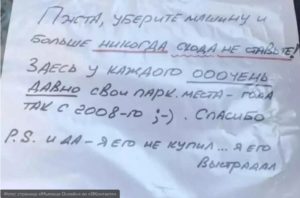 Пжста, уберите машину и
больше никогда сюда не ставьте!
Здесь у каждого ооочень
давно свои парк. места - года
так с 2008-го ;-). Спасибо
P.S. и да - я его не купил... я его
выстрадал
Фото: страница «Мытищи Онлайн» во «ВКонтакте»